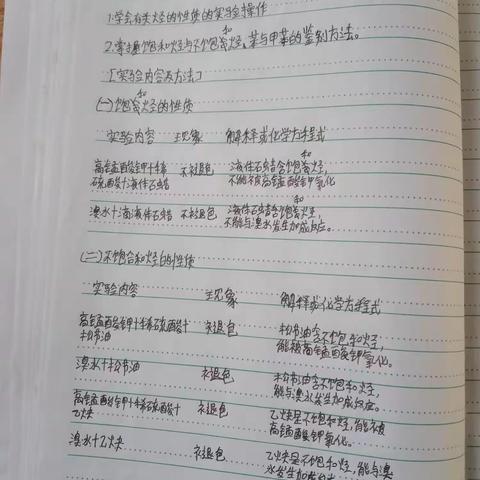 1.学会有关烃的性质的实验操作
2.掌握饱和烃与不饱和烃、苯与甲苯的鉴别方法。
[实验内容及方法]
(一)饱和烃的性质
实验内容 主现象 解释或化学方程式
高锰酸钾+稀硫酸+液体石蜡 不褪色 液体石蜡含饱和烃,不能被高锰酸钾氧化
溴水+液体石蜡 不褪色 液体石蜡含饱和烃,不能与溴水发生加成反应。
(二)不饱和烃的性质
实验内容 主现象 解释或化学方程式
高锰酸钾+稀硫酸+松节油 褪色 松节油含不饱和烃,能被高锰酸钾氧化。
溴水+松节油 褪色 松节油含不饱和烃,能与溴水发生加成反应。
高锰酸钾+稀硫酸+乙炔 褪色 乙炔是不饱和烃,能被高锰酸钾氧化。
溴水+乙炔 褪色 乙炔是不饱和烃,能与溴水发生加成